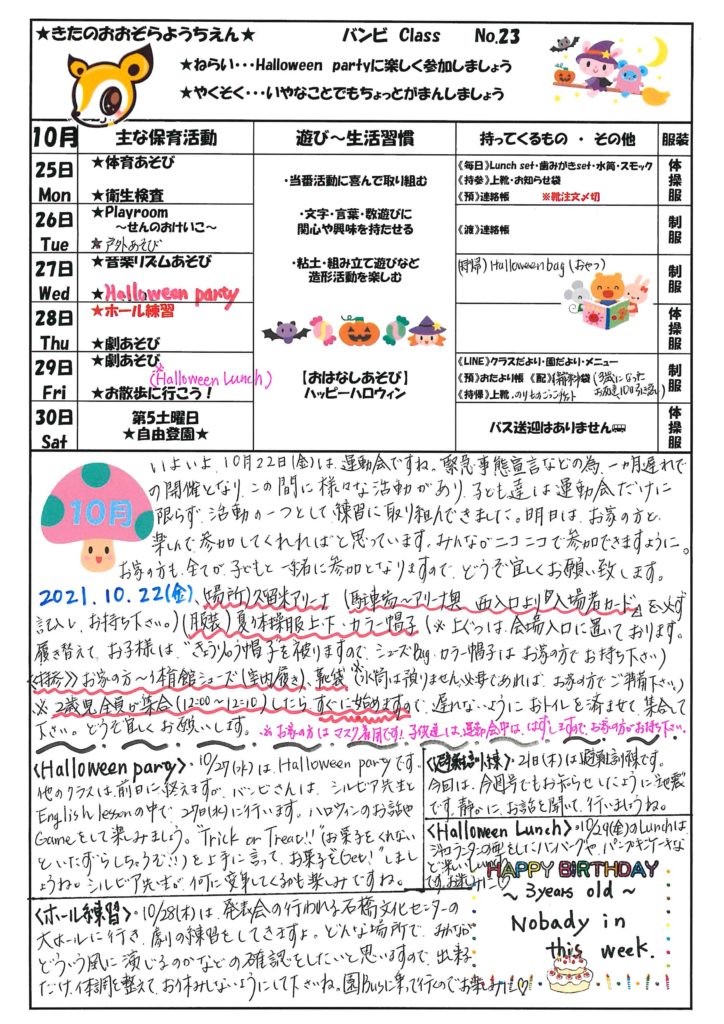 ★きたのおおぞらようちえん★ バンビ Class No.23
★ねらい・・・Halloween partyに楽しく参加しましょう
★やくそく・・・いやなことでもちょっとがまんしましょう
10月 主な保育活動 遊び～生活習慣 持ってくるもの ・ その他 服装
25日 Mon
★体育あそび
★衛生検査
・当番活動に喜んで取り組む
《毎日》Lunch set・歯みがきset・水筒・スモック
《持参》上靴・お知らせ袋
《預》連絡帳 ※靴注文〆切
体操服
26日 Tue
★Playroom
～せんのおけいこ～
★戸外あそび
・文字・言葉・数遊びに
関心や興味を持たせる
《渡》連絡帳
制服
27日 Wed
★音楽リズムあそび
★Halloween party
・粘土・組み立て遊びなど
造形活動を楽しむ
(持帰) Halloween bag (おやつ)
制服
28日 Thu
★ホール練習
★劇あそび
体操服
29日 Fri
★劇あそび
※(Halloween Lunch)
★お散歩に行こう！
【おはなしあそび】
ハッピーハロウィン
《LINE》クラスだより・園だより・メニュー
《預》おたより帳 《配》
《持帰》上靴、
制服
30日 Sat
第5土曜日
★自由登園★
バス送迎はありません
体操服
10月
いよいよ、10月22日(金)は、運動会ですね。緊急事態宣言などの為、一カ月遅れで
の開催となり、この間に様々な活動があり、子ども達は運動会だけに
限らず、活動の一つとして練習に取り組んできました。明日は、お家の方と、
楽しんで参加してくれればと思っています。みんながニコニコで参加できますように。
お家の方も、全てが、子どもと一緒に参加となりますので、どうぞ宜しくお願い致します。
2021.10.22(金)、(場所)久留米アリーナ (駐車場～アリーナ奥 西入口より『入場者カード』を必ず
記入し、お持ち下さい。) (服装)夏の体操服上下・カラー帽子 (※上ぐつは、会場入口に置いております。
履き替えて、お子様は、"きょうりゅう帽子"を被りますので、シューズBag・カラー帽子は お家の方でお持ち下さい)
《持参》お家の方へ体育館シューズ(室内履き)、靴袋 (※水筒は預りません。必要であれば、お家の方で ご準備下さい)
※2歳児全員が集合(12:00～12:10)したら、すぐに始めますので、遅れないようにおトイレを済ませて、集合して
下さい。どうぞ宜しくお願いします。 ※お家の方は マスク着用です! 子供達は、運動会中は、はずしますので、お家の方がお持ち下さい。
〈Halloween party〉・10/27(水)は、Halloween partyです。
他のクラスは、前日に終えますが、バンビさんは、シルビア先生と
English lessonの中で、27日(水)に行います。ハロウィンのお話や
Gameをして楽しみましょう。"Trick or Treat!!"(お菓子をくれない
といたずらしちゃうむ!!)を上手に言って、お菓子をGet!"しまし
ょうね。シルビア先生が、何に変身してくるかも楽しみですね。
〈避難訓練〉・21日(木)は避難訓練です。
今回は、今週号でもお知らせしたように地震
です。静かに、お話を聞いて、行いましょうね。
〈Halloween Lunch〉・10/29(金)のLunchは
ジャコランタンの
HAPPY BIRTHDAY
～ 3years old ～
Nobody in
this week.
〈ホール練習〉・10/28(木)は、発表会の行われる石橋文化センターの
大ホールに行き、劇の練習をしてきますよ。どんな場所で、みんなが
どういう風に演じるのかなどの確認をしたいと思いますので、出来る
だけ、体調を整えて、お休みしないようにして下さいね。園Busに乗って行くのでお楽しみに♡